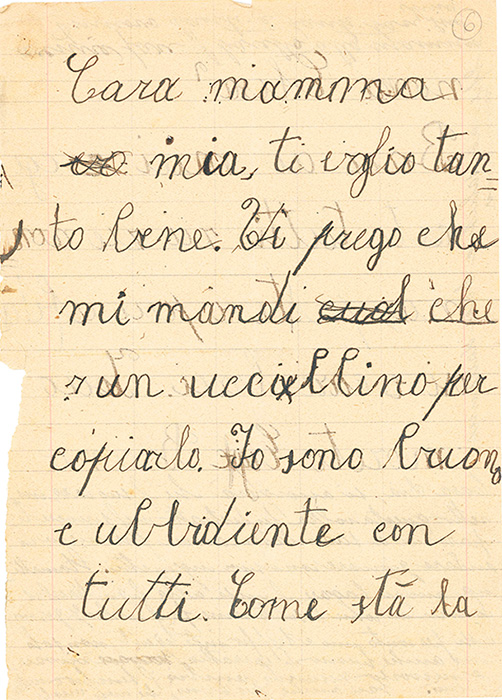 6
Cara mamma
mia, ti oglio tan=
to bene. Ti prego che
mi mandi che
un uccellino per
copiarlo. Io sono buono
e ubbidiente con
tutti. Come stà la